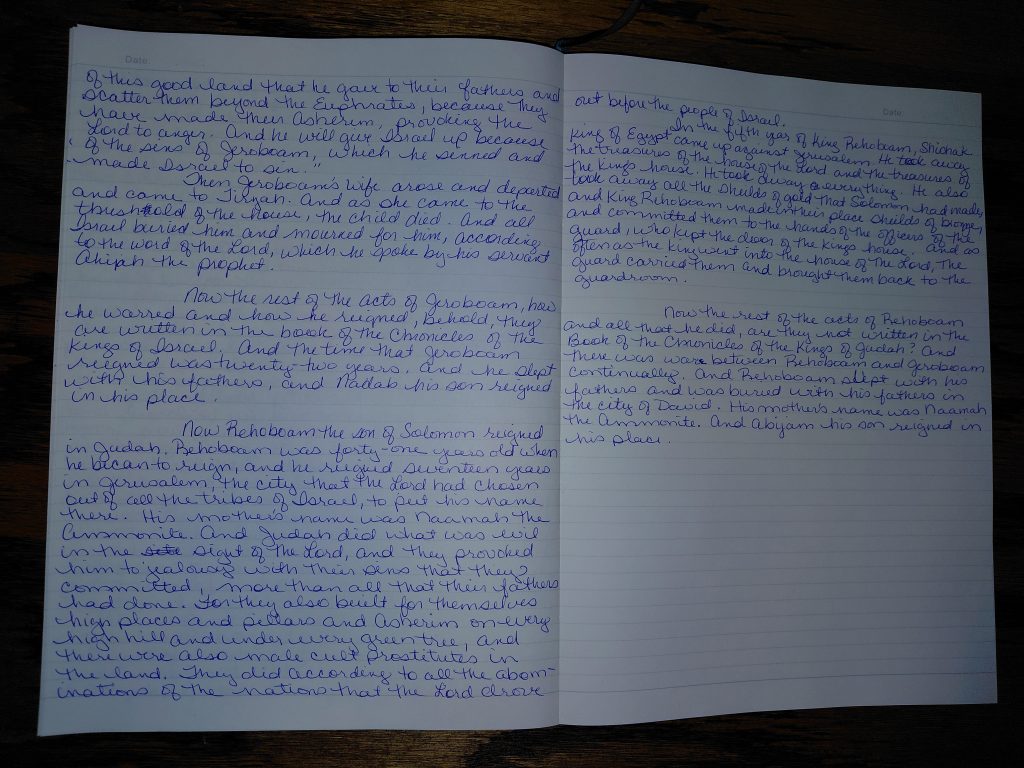 Date:
of this good land that he gave to their fathers and
scatter them beyond the Euphrates, because they
have made their Asherim, provoking the
Lord to anger. And he will give Israel up because
of the sins of Jeroboam, which he sinned and
made Israel to sin."
Then Jeroboam's wife arose and departed
and came to Tirzah. And as she came to the
threshold of the house, the child died. And all
Israel buried him and mourned for him, according
to the word of the Lord, which he spoke by his servant
Ahijah the prophet.
Now the rest of the acts of Jeroboam, how
he warred and how he reigned, behold, they
are written in the book of the Chronicles of the
Kings of Israel. And the time that Jeroboam
reigned was twenty-two years. And he slept
with his fathers, and Nadab his son reigned
in his place.
Now Rehoboam the son of Solomon reigned
in Judah. Rehoboam was forty-one years old when
he bican to reign, and he reigned seventeen years
in Jerusalem, the city that the Lord had chosen
out of all the tribes of Israel, to put his name
there. His mother's name was Naamah the
Ammonite. And Judah did what was evil
in the sight of the Lord, and they provoked
him to jealousy with their sins that they
committed, more than all that their fathers
had done. For they also built for themselves
high places and pillars and Asherim on every
high hill and under every green tree, and
there were also male cult prostitutes in
the land. They did according to all the abom-
inations of the nations that the Lord drove
Date:
out before the people of Israel.
In the fifth year of King Rehoboam, Shishak
king of Egypt came up against Jerusalem. He took away
the treasures of the house of the Lord and the treasures of
the kings house. He took away everything. He also
took away all the shields of gold that Solomon had made,
and King Rehoboam made in their place shields of bronze,
and committed them to the hands of the officers of the
guard, who kept the door of the kings house. And as
often as the king went into the house of the Lord, the
guard carried them and brought them back to the
guardroom.
Now the rest of the acts of Rehoboam
and all that he did, are they not written in the
Book of the Chronicles of the Kings of Judah? And
there was war between Rehoboam and Jeroboam
continually. And Rehoboam slept with his
fathers and was buried with his fathers in
the city of David. His mother's name was Naamah
the Ammonite. And Abijam his son reigned in
his place.